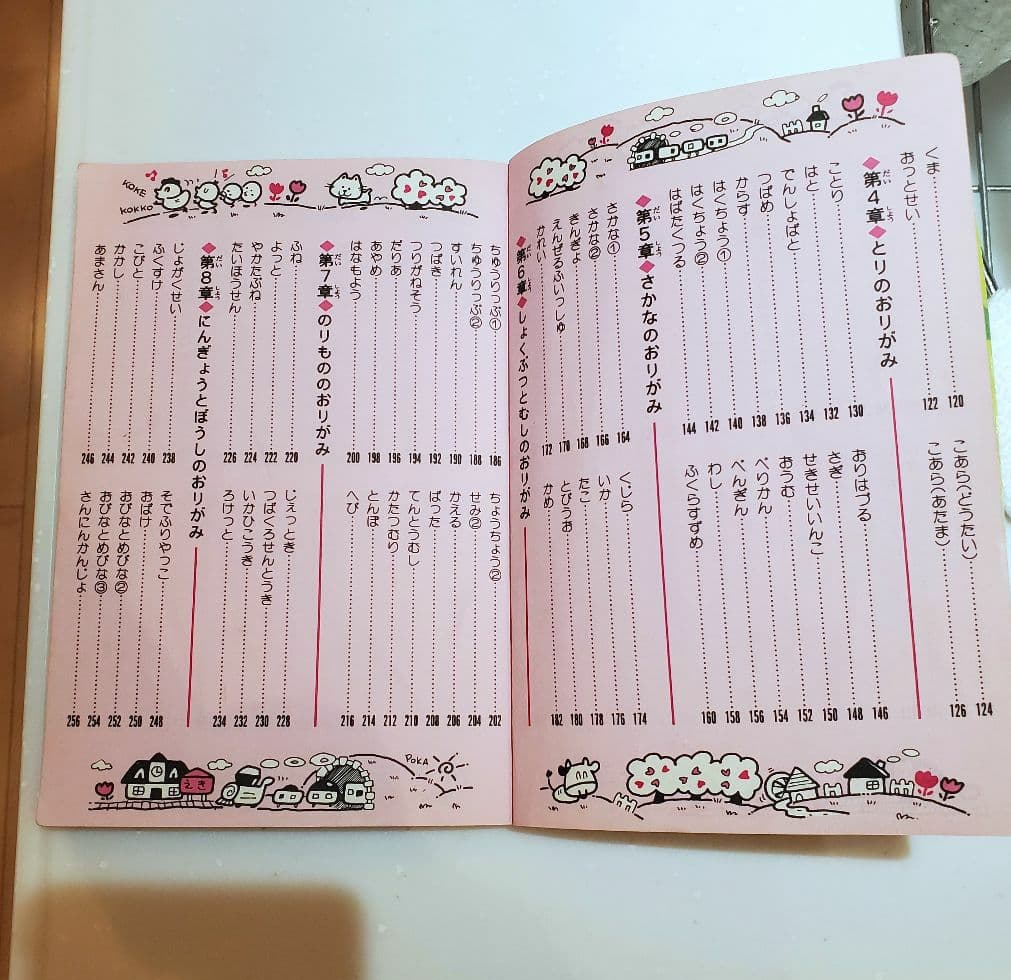 くま 120
おっとせい 122
こあら(どうたい) 124
こあら(あたま) 126
◆第4章◆とりのおりがみ
だい しょう
ことり 130
はと 132
でんしょばと 134
つばめ 136
からす 138
はくちょう① 140
はくちょう② 142
はばたくつる 144
おりはづる 146
さぎ 148
せきせいいんこ 150
おうむ 152
ぺりかん 154
ぺんぎん 156
わし 158
ふくらすずめ 160
◆第5章◆さかなのおりがみ
だい しょう
さかな① 164
さかな② 166
きんぎょ 168
えんぜるふいっしゅ 170
かれい 172
くじら 174
いか 176
たこ 178
とびうお 180
かめ 182
◆第6章◆しょくぶつとむしのおりがみ
だい しょう
ちゅうりっぷ① 186
ちゅうりっぷ② 188
すいれん 190
つばき 192
つりがねそう 194
だりあ 196
あやめ 198
はなもよう 200
ちょうちょう② 202
せみ② 204
かえる 206
ばった 208
てんとうむし 210
かたつむり 212
とんぼ 214
へび 216
◆第7章◆のりもののおりがみ
だい しょう
ふね 220
よっと 222
やかたぶね 224
たいほうせん 226
じぇっとき 228
つばくろせんとうき 230
いかひこうき 232
ろけっと 234
◆第8章◆にんぎょうとぼうしのおりがみ
だい しょう
じょがくせい 238
ふくすけ 240
こびと 242
かかし 244
あまさん 246
そでふりやっこ 248
おばけ 250
おびなとめびな② 252
おびなとめびな③ 254
さんにんかんじょ 256
KOKE
KOKKO
えき
POKA